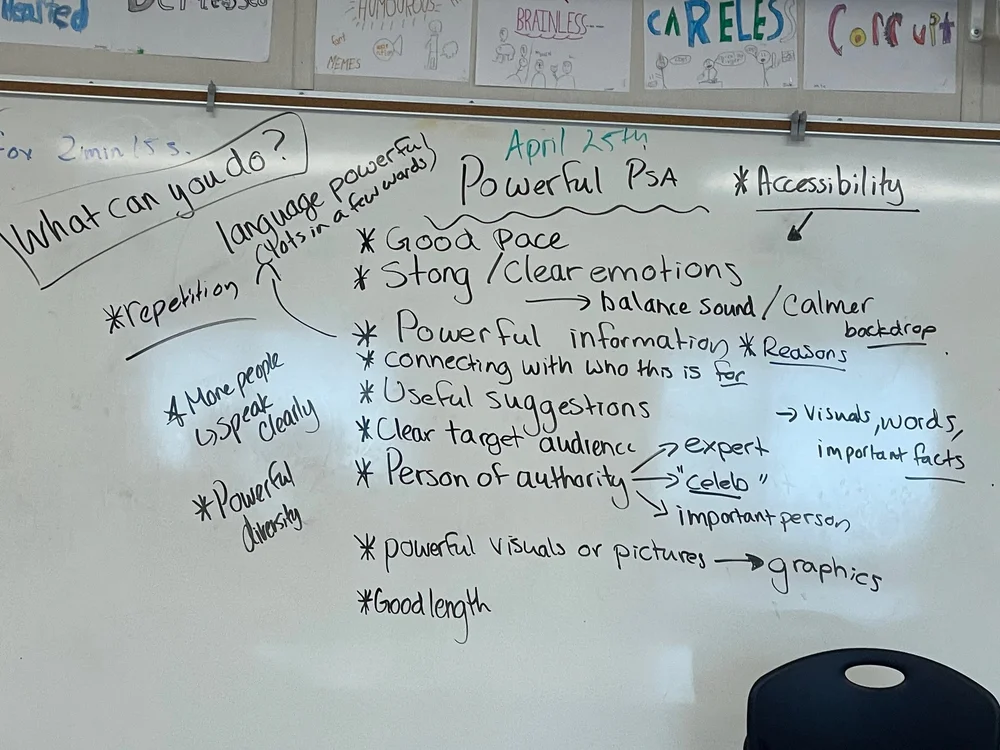 HUMOUROUS
Get
MEMES
BRAINLESS--
CARELES
Corrupt
For 2 min 15 s.
What can you do?
April 25th
Powerful PSA
*Accessibility
language powerful
(lots in a few words)
*Good pace
*Stong/Clear emotions
→ balance sound/Calmer
backdrop
*repetition
*Powerful information *Reasons
*connecting with who this is for
*Useful suggestions
→ visuals, words,
important facts
*More people
↳speak
clearly
*Clear target audience
*Person of authority → expert
→ "celeb"
→ important person
*Powerful
diversity
*powerful visuals or pictures → graphics
*Good length